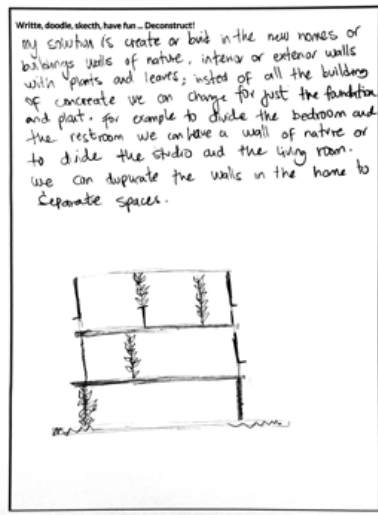 Writte, doodle, skecth, have fun ... Deconstruct!
my solution is create or buid in the new homes or
buildings walls of nature, interior or exterior walls
with plants and leaves; insted of all the building
of concreate we can change for just the foundation
and plant. for example to divide the bedroom and
the restroom we can have a wall of natvre or
to divide the studio and the living room.
we can dupucate the walls in the home to
Separate spaces.